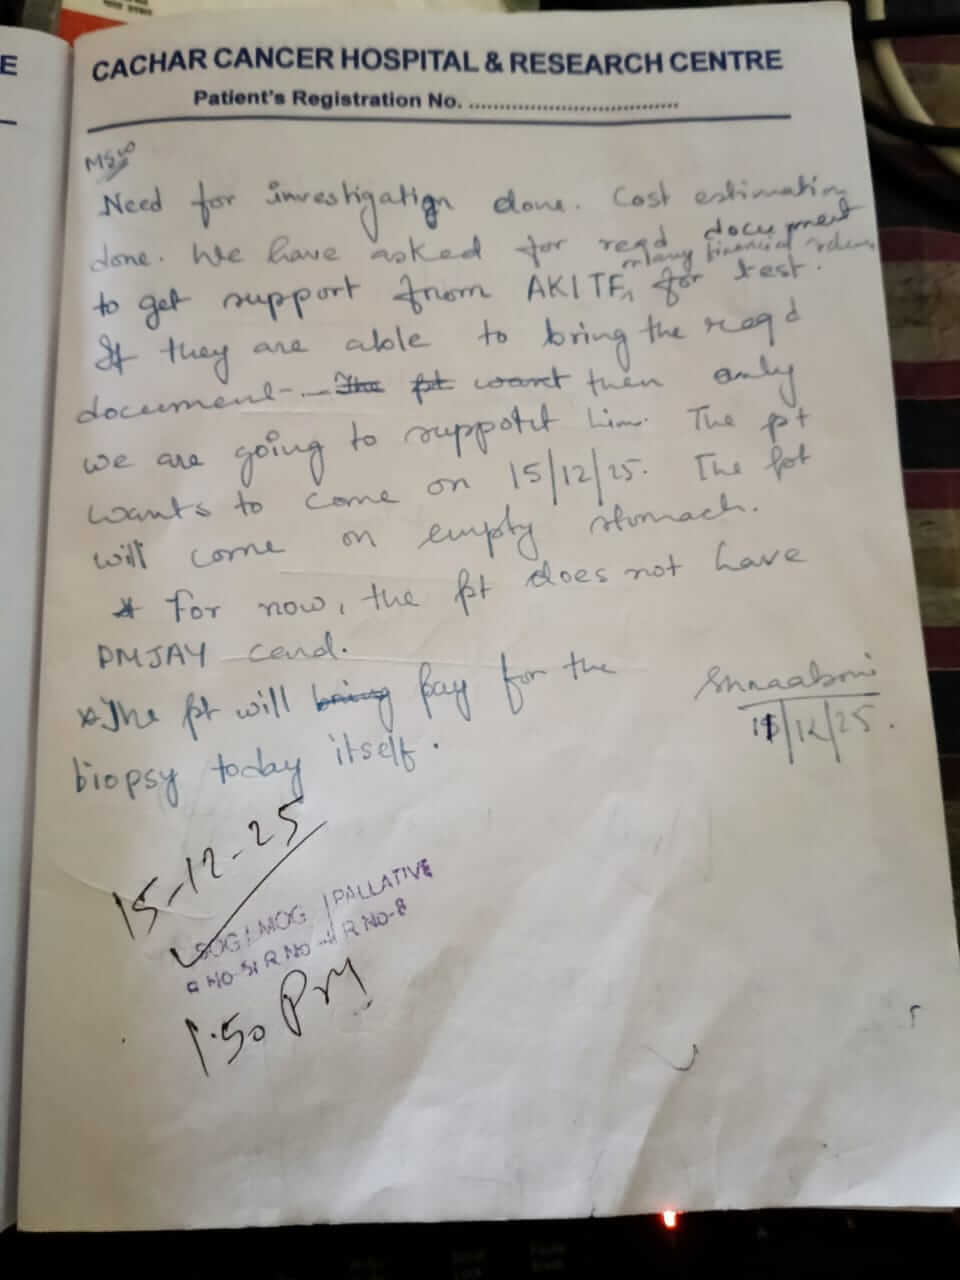 E
CACHAR CANCER HOSPITAL & RESEARCH CENTRE
Patient's Registration No. ..................................
MSW
Need for investigatign done. Cost estimation
done. We have asked for reqd document
to get support from AKITF, for test.
financial
If they are able to bring the reqd
document - The pt want then only
we are going to suppotrt him. The pt
wants to come on 15/12/25. The pt
will come on empty stomach.
* For now, the pt does not have
PMJAY card.
* The pt will being pay for the
biopsy today itself.
15/12/25.
15-12-25
SOG / MOG / PALLATIVE
R NO-8
1.50 PM